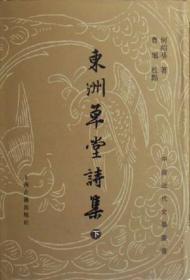 中國近代文學叢書
何紹基 著
曹旭 校點
東洲草堂詩集
下
上海古籍出版社